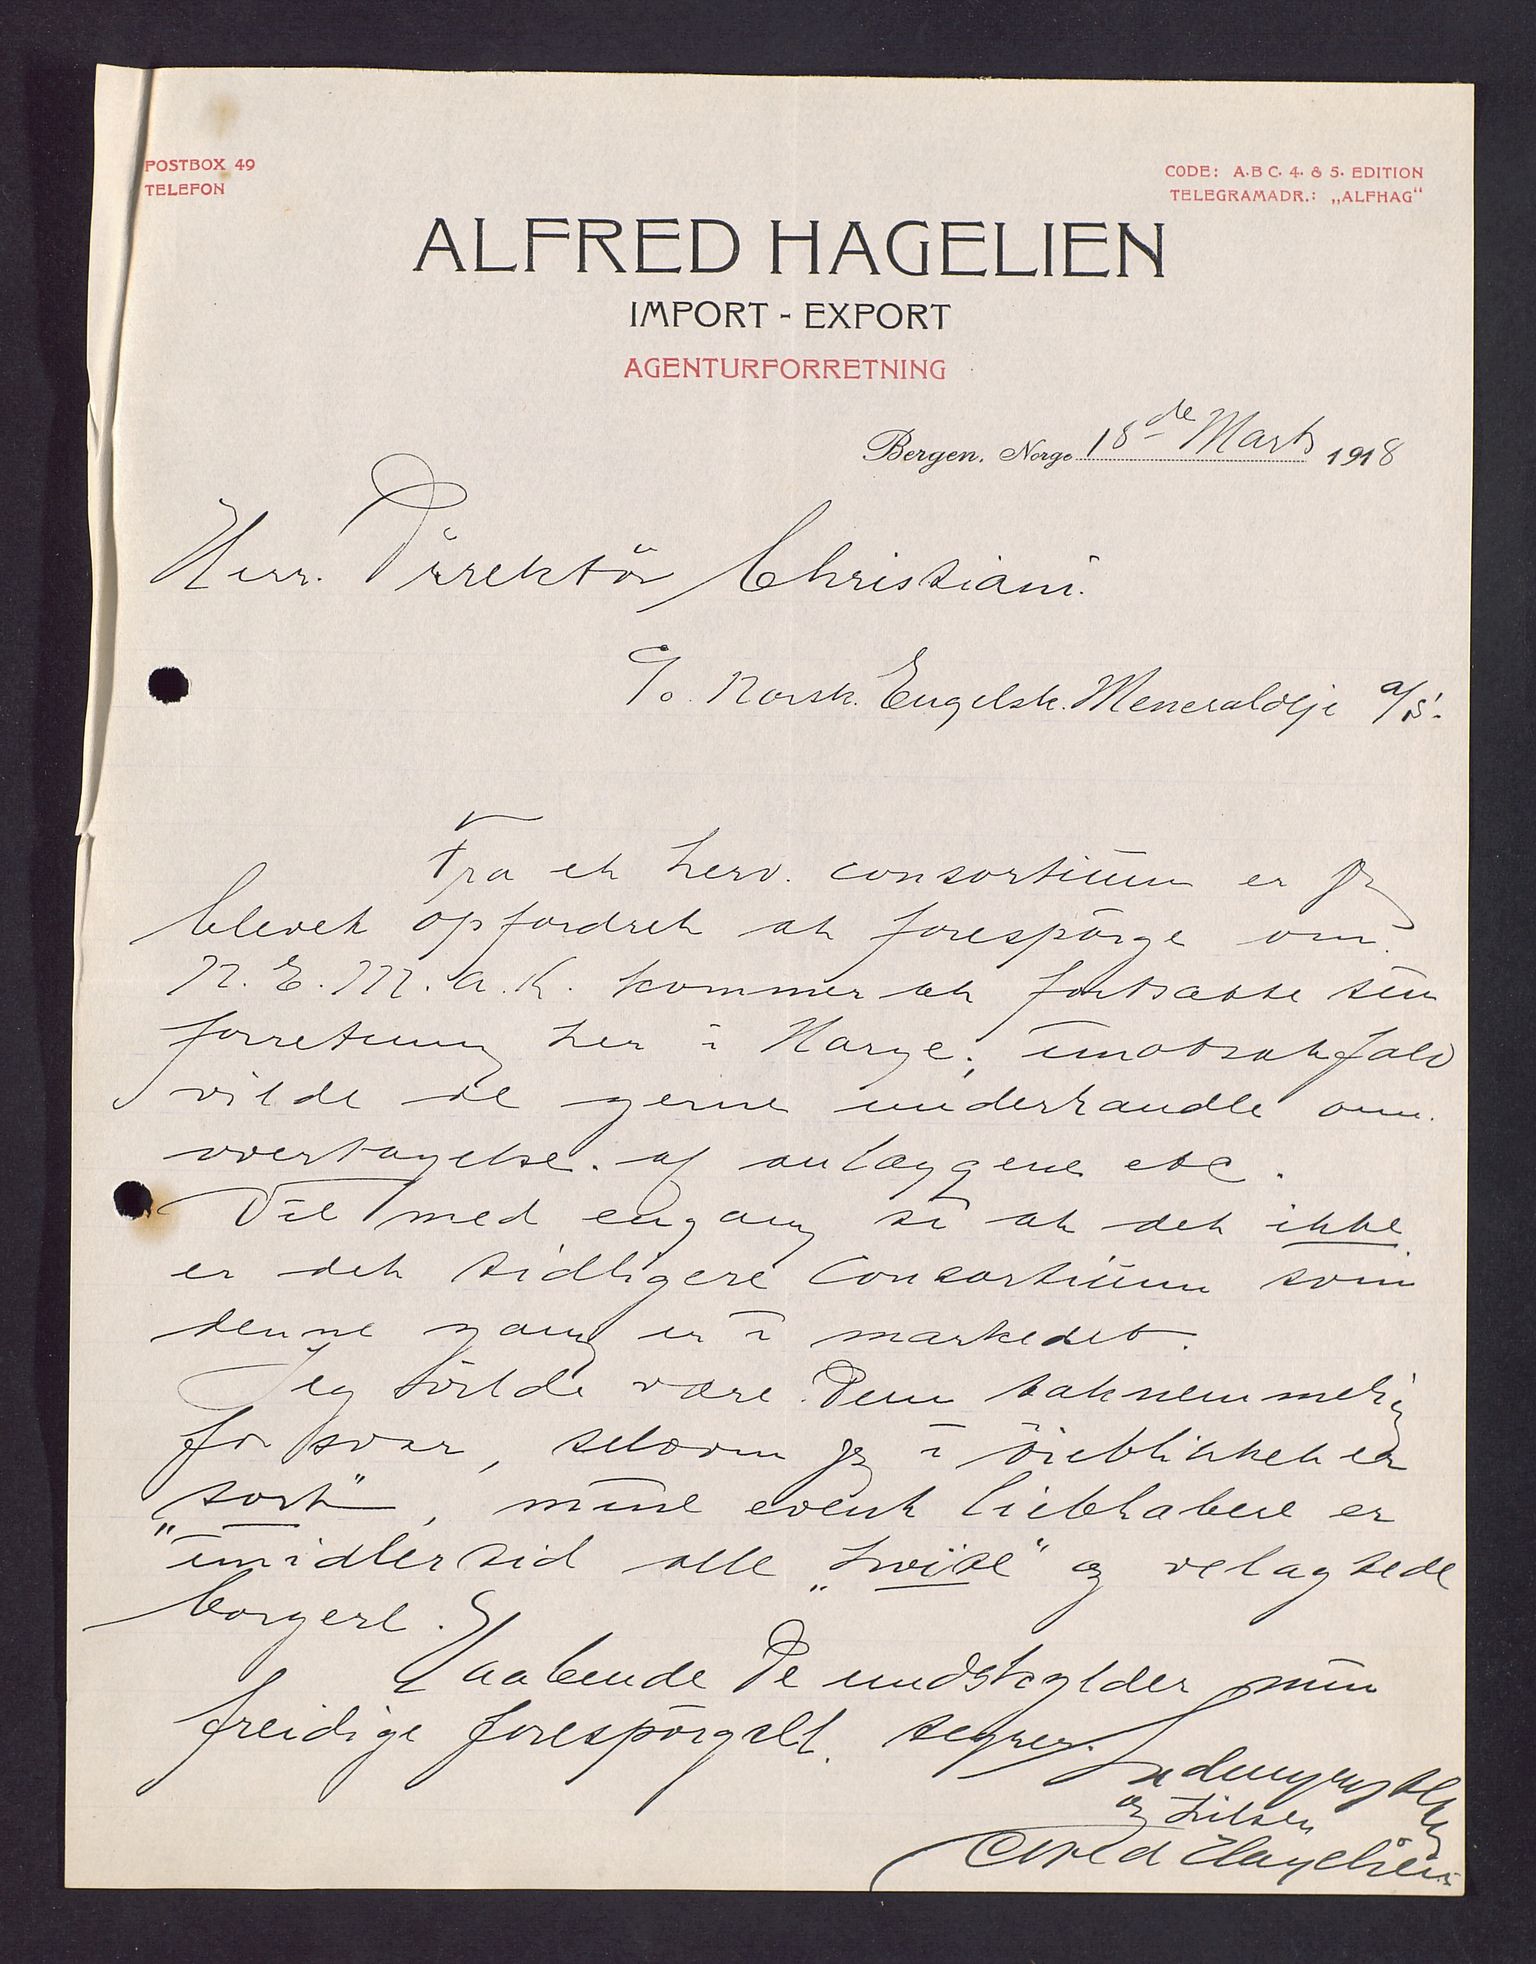 POSTBOX 49
TELEFON
CODE: A.B C. 4. & 5. EDITION
TELEGRAMADR.: „ALFHAG“
ALFRED HAGELIEN
IMPORT - EXPORT
AGENTURFORRETNING
Bergen, Norge 18de Marts 1918
Herr. Direktör Christiani.
c/o. Norsk. Engelsk. Meneralolje a/s.
Fra et herv. consortium er jeg
blevet opfordret at forespörge om
N.E.M.a.K. kommer at fortsætte sin
forretning her i Norge; imotsatfald
vilde de gerne underhandle om.
overtagelse. af anlæggene etc.
Vil med engang si at det ikke
er det tidligere Consortium som
denne gang er i markedet.
Jeg vilde være Dem taknemmelig
for svar, selvom jeg i öieblikket er
„sort“, mine event liebhabere er
imidlertid alle „hvite“ og velagtede
borgere.
Haabende De undskylder min
freidige forespörgsel. tegner.
og hilsen
Alfred Hagelien